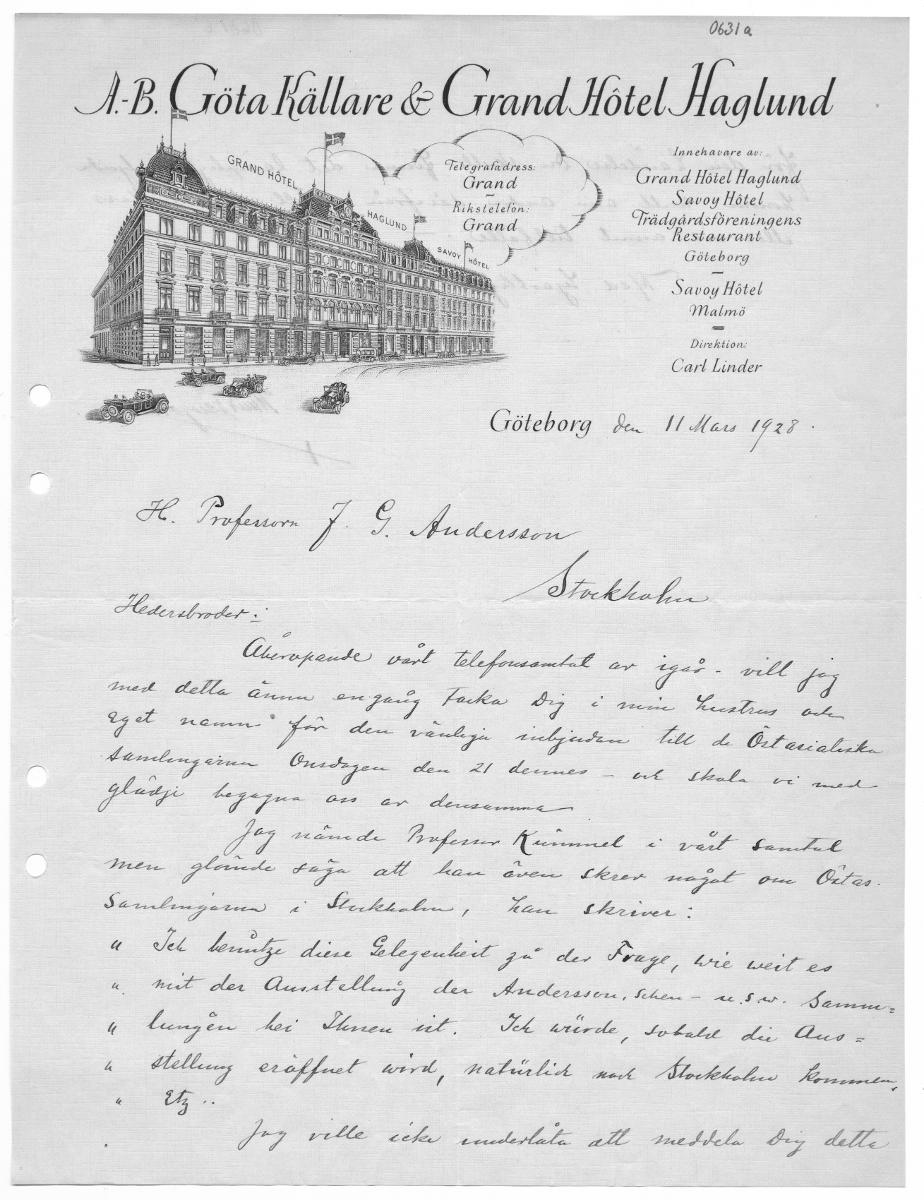 0631a
A.-B. Göta Källare & Grand Hôtel Haglund
GRAND HÔTEL
HAGLUND
SAVOY HÔTEL
Telegrafadress:
Grand
Rikstelefon:
Grand
Innehavare av:
Grand Hôtel Haglund
Savoy Hôtel
Trädgårdsföreningens
Restaurant
Göteborg
Savoy Hôtel
Malmö
Direktion:
Carl Linder
Göteborg den 11 Mars 1928.
H. Professorn J. G. Andersson
Stockholm
Hedersbroder:
Åberopande vårt telefonsamtal av igår - vill jag
med detta ännu engång tacka Dig i min hustrus och
eget namn för den vänliga inbjudan till de Östasiatiska
samlingarna Onsdagen den 21 dennes - och skola vi med
glädje begagna oss av densamma
Jag nämde Professor Kümmel i vårt samtal
men glömde säga att han även skrev något om Östas.
Samlingarna i Stockholm, han skriver:
" Ich benütze diese Gelegenheit zu der Frage, wie weit es
" mit der Ausstellung der Andersson,schen - u.s.w. Samm=
" lungen bei Ihnen ist. Ich würde, sobald die Aus=
" stellung eröffnet wird, natürlich nach Stockholm kommen,
" Etz..
Jag ville icke underlåta att meddela Dig detta